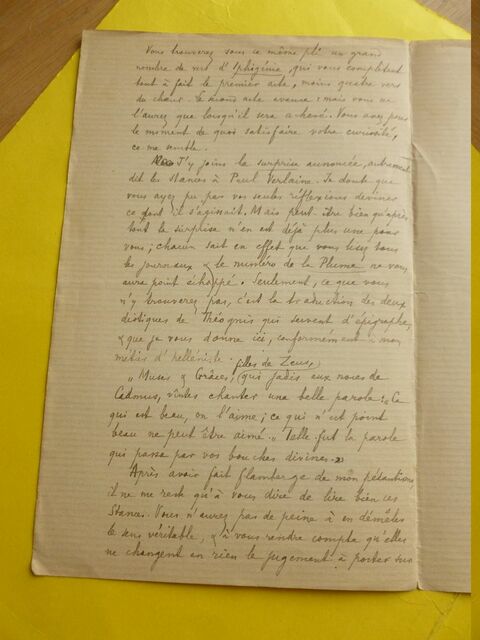 Vous trouverez sous ce même pli un grand
nombre de vers d'Iphigénie, qui vous complètent
tout à fait le premier acte, moins quatre vers
du chœur. Le second acte avance : mais vous ne
l'aurez que lorsqu'il sera achevé. Vous avez pour
le moment de quoi satisfaire votre curiosité,
ce me semble.
J'y joins la surprise annoncée, autrement
dit les Stances à Paul Verlaine. Je doute que
vous ayez pu par vos seules réflexions deviner
ce dont il s'agissait. Mais peut-être bien qu'après
tout la surprise n'en est déjà plus une pour
vous ; chacun sait en effet que vous lisez tous
les journaux & le numéro de la Plume ne vous
aura point échappé. Seulement, ce que vous
n'y trouverez pas, c'est la traduction des deux
distiques de Théognis qui servent d'épigraphe,
& que je vous donne ici, conformément à mon
métier d'helléniste.
filles de Zeus,
"Muses & Grâces, qui jadis aux noces de
Cadmus, vîntes chanter une belle parole : "Ce
qui est beau, on l'aime ; ce qui n'est point
beau ne peut être aimé." Telle fut la parole
qui passa par vos bouches divines."
Après avoir fait flamberge de mon pédantisme,
il ne me reste qu'à vous dire de lire bien ces
Stances. Vous n'aurez pas de peine à en démêler
le sens véritable, & à vous rendre compte qu'elles
ne changent en rien le jugement à porter sur